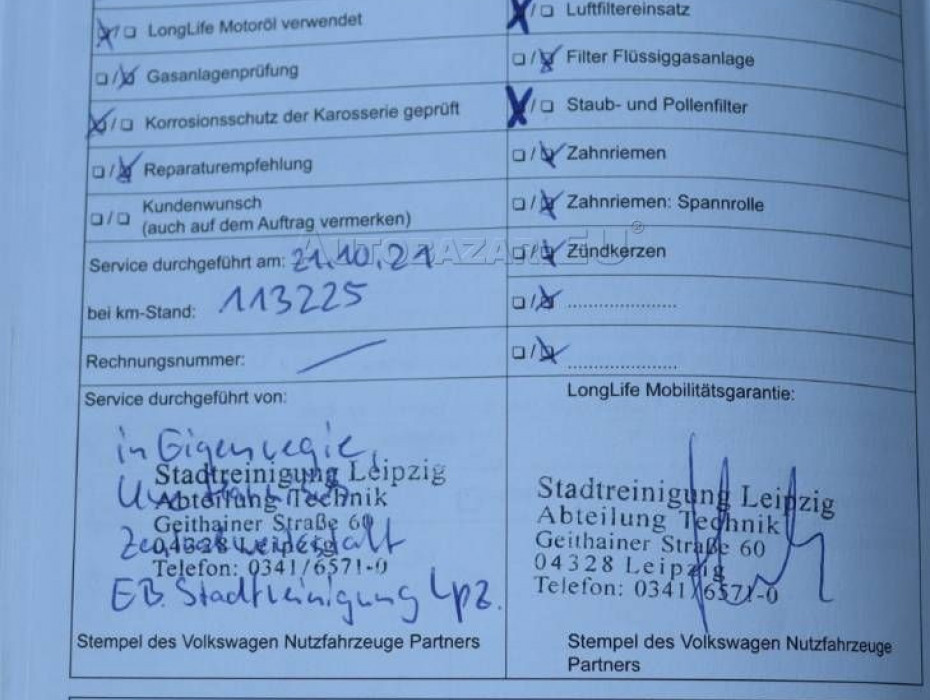 LongLife Motoröl verwendet
Gasanlagenprüfung
Korrosionsschutz der Karosserie geprüft
Reparaturempfehlung
Kundenwunsch
(auch auf dem Auftrag vermerken)
Service durchgeführt am: 21.10.21
bei km-Stand: 113225
Rechnungsnummer:
Service durchgeführt von:
in Eigenregie
Stadtreinigung Leipzig
Abteilung Technik
Geithainer Straße 60
04328 Leipzig
Telefon: 0341/6571-0
EB. Stadtreinigung Lpz.
Stempel des Volkswagen Nutzfahrzeuge Partners
Luftfiltereinsatz
Filter Flüssiggasanlage
Staub- und Pollenfilter
Zahnriemen
Zahnriemen: Spannrolle
Zündkerzen
LongLife Mobilitätsgarantie:
Stadtreinigung Leipzig
Abteilung Technik
Geithainer Straße 60
04328 Leipzig
Telefon: 0341/6571-0
Stempel des Volkswagen Nutzfahrzeuge
Partners
AUTOBAZAR.EU®